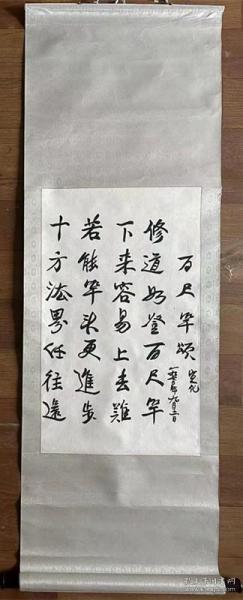 百尺竿頌
修道如登百尺竿
下来容易上去難
若能竿头更進步
十方法界任往還
宣化